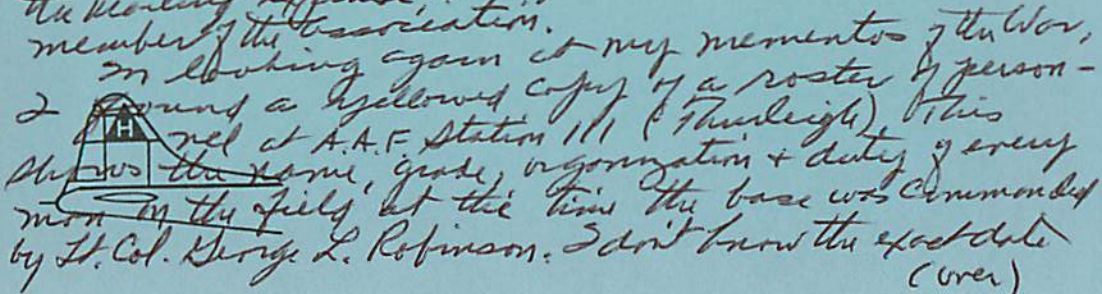 member of the association.
In looking again at my mementos of the War,
I found a yellowed copy of a roster of person-
H
nel at A.A.F. Station 111 (Thurleigh). This
shows the name, grade, organization + duty of every
man on the field at the time the base was commanded
by Lt. Col. George L. Robinson. I don't know the exact date
(over)